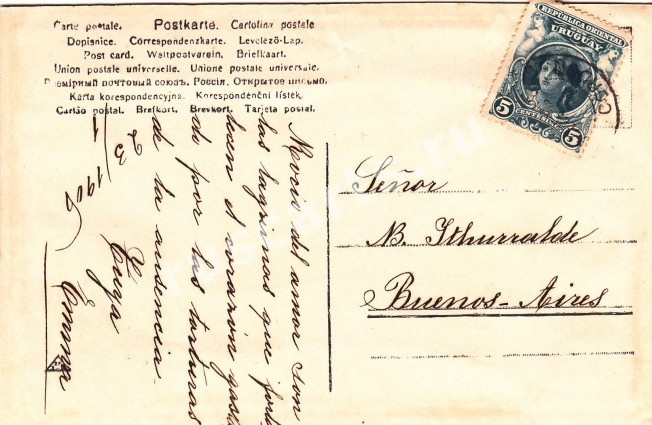 Carte postale. Postkarte. Cartolina postale
Dopisnice. Correspondenzkarte. Levelező-Lap.
Post card. Weltpostverein. Briefkaart.
Union postale universelle. Unione postale universale.
Всемірный почтовый союзъ. Россія. Открытое письмо.
Karta korespondencyjna. Korespondenční lístek.
Cartão postal. Brefkort. Brevkort. Tarjeta postal.
REPUBLICA ORIENTAL
URUGUAY
5 CENTESIMOS 5
Señor
N. Ithurralde
Buenos-Aires
del amor son
las lagrimas que
el corazón
do por las torturas
de la ausencia.
Tuya
Emma
23/1 1906